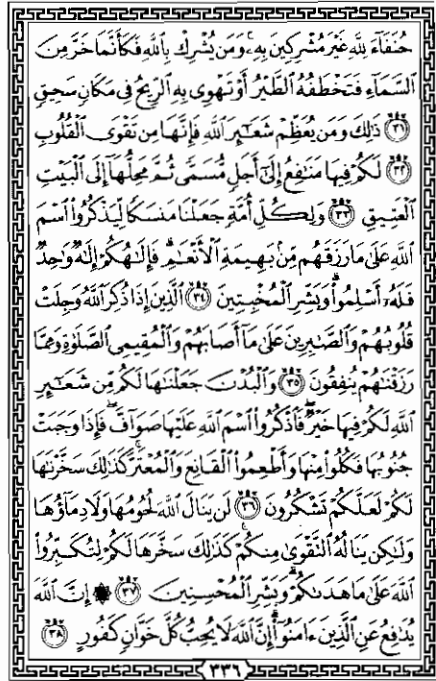 حُنَفَآءَ لِلَّهِ غَيْرَ مُشْرِكِينَ بِهِۦۚ وَمَن يُشْرِكْ بِٱللَّهِ فَكَأَنَّمَا خَرَّ مِنَ
ٱلسَّمَآءِ فَتَخْطَفُهُ ٱلطَّيْرُ أَوْ تَهْوِى بِهِ ٱلرِّيحُ فِى مَكَانٍ سَحِيقٍ
﴿٣١﴾ ذَٰلِكَ وَمَن يُعَظِّمْ شَعَـٰٓئِرَ ٱللَّهِ فَإِنَّهَا مِن تَقْوَى ٱلْقُلُوبِ
﴿٣٢﴾ لَكُمْ فِيهَا مَنَـٰفِعُ إِلَىٰٓ أَجَلٍ مُّسَمًّى ثُمَّ مَحِلُّهَآ إِلَى ٱلْبَيْتِ
ٱلْعَتِيقِ ﴿٣٣﴾ وَلِكُلِّ أُمَّةٍ جَعَلْنَا مَنسَكًا لِّيَذْكُرُوا۟ ٱسْمَ
ٱللَّهِ عَلَىٰ مَا رَزَقَهُم مِّنۢ بَهِيمَةِ ٱلْأَنْعَـٰمِۗ فَإِلَـٰهُكُمْ إِلَـٰهٌ وَٰحِدٌ
فَلَهُۥٓ أَسْلِمُوا۟ۗ وَبَشِّرِ ٱلْمُخْبِتِينَ ﴿٣٤﴾ ٱلَّذِينَ إِذَا ذُكِرَ ٱللَّهُ وَجِلَتْ
قُلُوبُهُمْ وَٱلصَّـٰبِرِينَ عَلَىٰ مَآ أَصَابَهُمْ وَٱلْمُقِيمِى ٱلصَّلَوٰةِ وَمِمَّا
رَزَقْنَـٰهُمْ يُنفِقُونَ ﴿٣٥﴾ وَٱلْبُدْنَ جَعَلْنَـٰهَا لَكُم مِّن شَعَـٰٓئِرِ
ٱللَّهِ لَكُمْ فِيهَا خَيْرٌۖ فَٱذْكُرُوا۟ ٱسْمَ ٱللَّهِ عَلَيْهَا صَوَآفَّۖ فَإِذَا وَجَبَتْ
جُنُوبُهَا فَكُلُوا۟ مِنْهَا وَأَطْعِمُوا۟ ٱلْقَانِعَ وَٱلْمُعْتَرَّۚ كَذَٰلِكَ سَخَّرْنَـٰهَا
لَكُمْ لَعَلَّكُمْ تَشْكُرُونَ ﴿٣٦﴾ لَن يَنَالَ ٱللَّهَ لُحُومُهَا وَلَا دِمَآؤُهَا
وَلَـٰكِن يَنَالُهُ ٱلتَّقْوَىٰ مِنكُمْۚ كَذَٰلِكَ سَخَّرَهَا لَكُمْ لِتُكَبِّرُوا۟
ٱللَّهَ عَلَىٰ مَا هَدَىٰكُمْۗ وَبَشِّرِ ٱلْمُحْسِنِينَ ﴿٣٧﴾ ۞ إِنَّ ٱللَّهَ
يُدَٰفِعُ عَنِ ٱلَّذِينَ ءَامَنُوٓا۟ۗ إِنَّ ٱللَّهَ لَا يُحِبُّ كُلَّ خَوَّانٍ كَفُورٍ ﴿٣٨﴾
٣٣٦